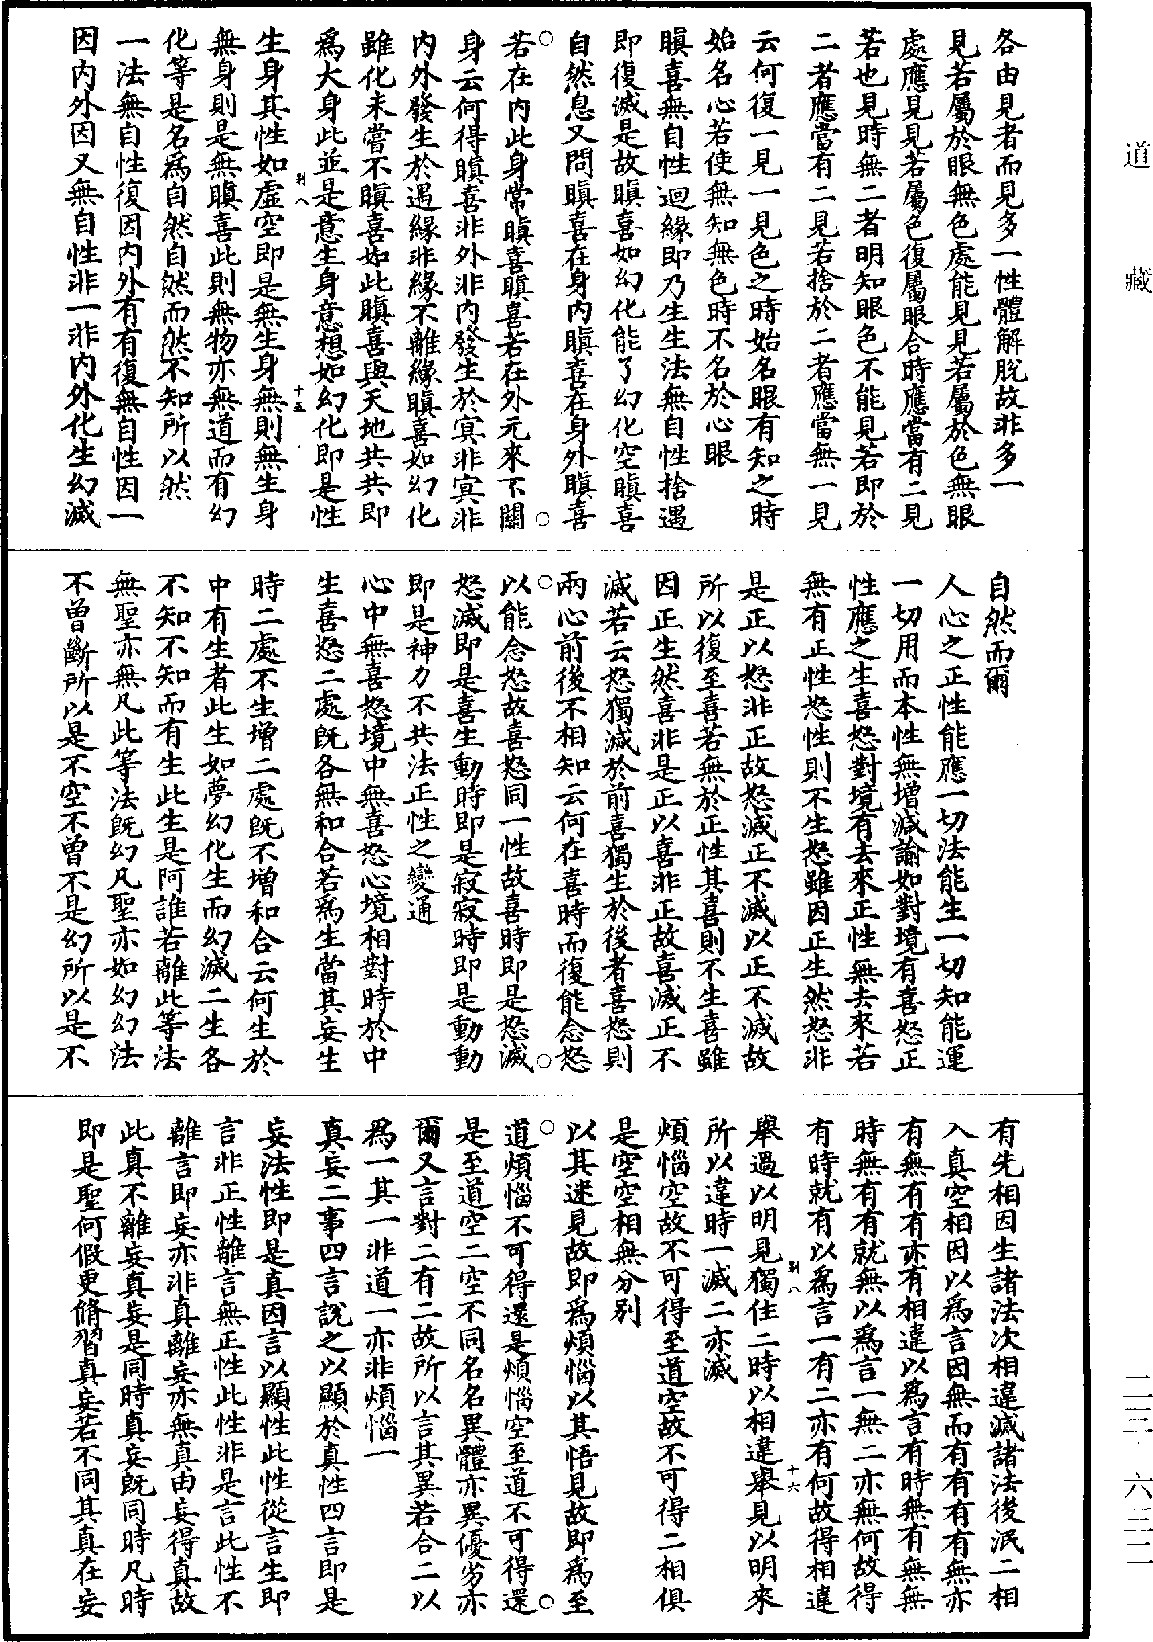 道藏
二三・六三二
各由見者而見多一性體解脫故非多一
見若屬於眼無色處能見見若屬於色無眼
處應見見若屬色復屬眼合時應當有二見
若也見時無二者明知眼色不能見若即於
二者應當有二見若捨於二者應當無一見
云何復一見一見色之時始名眼有知之時
始名心若使無知無色時不名於心眼
瞋喜無自性迴緣即乃生生法無自性捨遇
即復滅是故瞋喜如幻化能了幻化空瞋喜
自然息又問瞋喜在身內瞋喜在身外瞋喜
若在內此身常瞋喜瞋喜若在外元來不關
身云何得瞋喜非外非內發生於冥非冥非
內外發生於遇緣非緣不離緣瞋喜如幻化
雖化未嘗不瞋喜如此瞋喜與天地共共即
爲大身此並是意生身意想如幻化即是性
別八 十五
生身其性如虛空即是無生身無則無生身
無身則是無瞋喜此則無物亦無道而有幻
化等是名爲自然自然而然不知所以然
一法無自性復因內外有有復無自性因一
因內外因又無自性非一非內外化生幻滅
自然而爾
人心之正性能應一切法能生一切知能運
一切用而本性無增減諭如對境有喜怒正
性應之生喜怒對境有去來正性無去來若
無有正性怒性則不生怒雖因正生然怒非
是正以怒非正故怒滅正不滅以正不滅故
所以復至喜若無於正性其喜則不生喜雖
因正生然喜非是正以喜非正故喜滅正不
滅若云怒獨滅於前喜獨生於後者喜怒則
兩心前後不相知云何在喜時而復能念怒
以能念怒故喜怒同一性故喜時即是怒滅
怒滅即是喜生動時即是寂寂時即是動動
即是神力不共法正性之變通
心中無喜怒境中無喜怒心境相對時於中
生喜怒二處旣各無和合若爲生當其妄生
時二處不生增二處旣不增和合云何生於
中有生者此生如夢幻化生而幻滅二生各
不知不知而有生此生是阿誰若離此等法
無聖亦無凡此等法旣幻凡聖亦如幻幻法
不曾斷所以是不空不曾不是幻所以是不
有先相因生諸法次相違滅諸法後泯二相
入真空相因以爲言因無而有有有有無亦
有無有有亦有相違以爲言有時無有無無
時無有有就無以爲言一無二亦無何故得
有時就有以爲言一有二亦有何故得相違
別八 十六
舉過以明見獨住二時以相違舉見以明來
所以違時一滅二亦滅
煩惱空故不可得至道空故不可得二相俱
是空空相無分別
以其迷見故即爲煩惱以其悟見故即爲至
道煩惱不可得還是煩惱空至道不可得還
是至道空二空不同名名異體亦異優劣亦
爾又言對二有二故所以言其異若合二以
爲一其一非道一亦非煩惱一
真妄二事四言說之以顯於真性四言即是
妄法性即是真因言以顯性此性從言生即
言非正性離言無正性此性非是言此性不
離言即妄亦非真離妄亦無真由妄得真故
此真不離妄真妄是同時真妄旣同時凡時
即是聖何假更脩習真妄若不同其真在妄